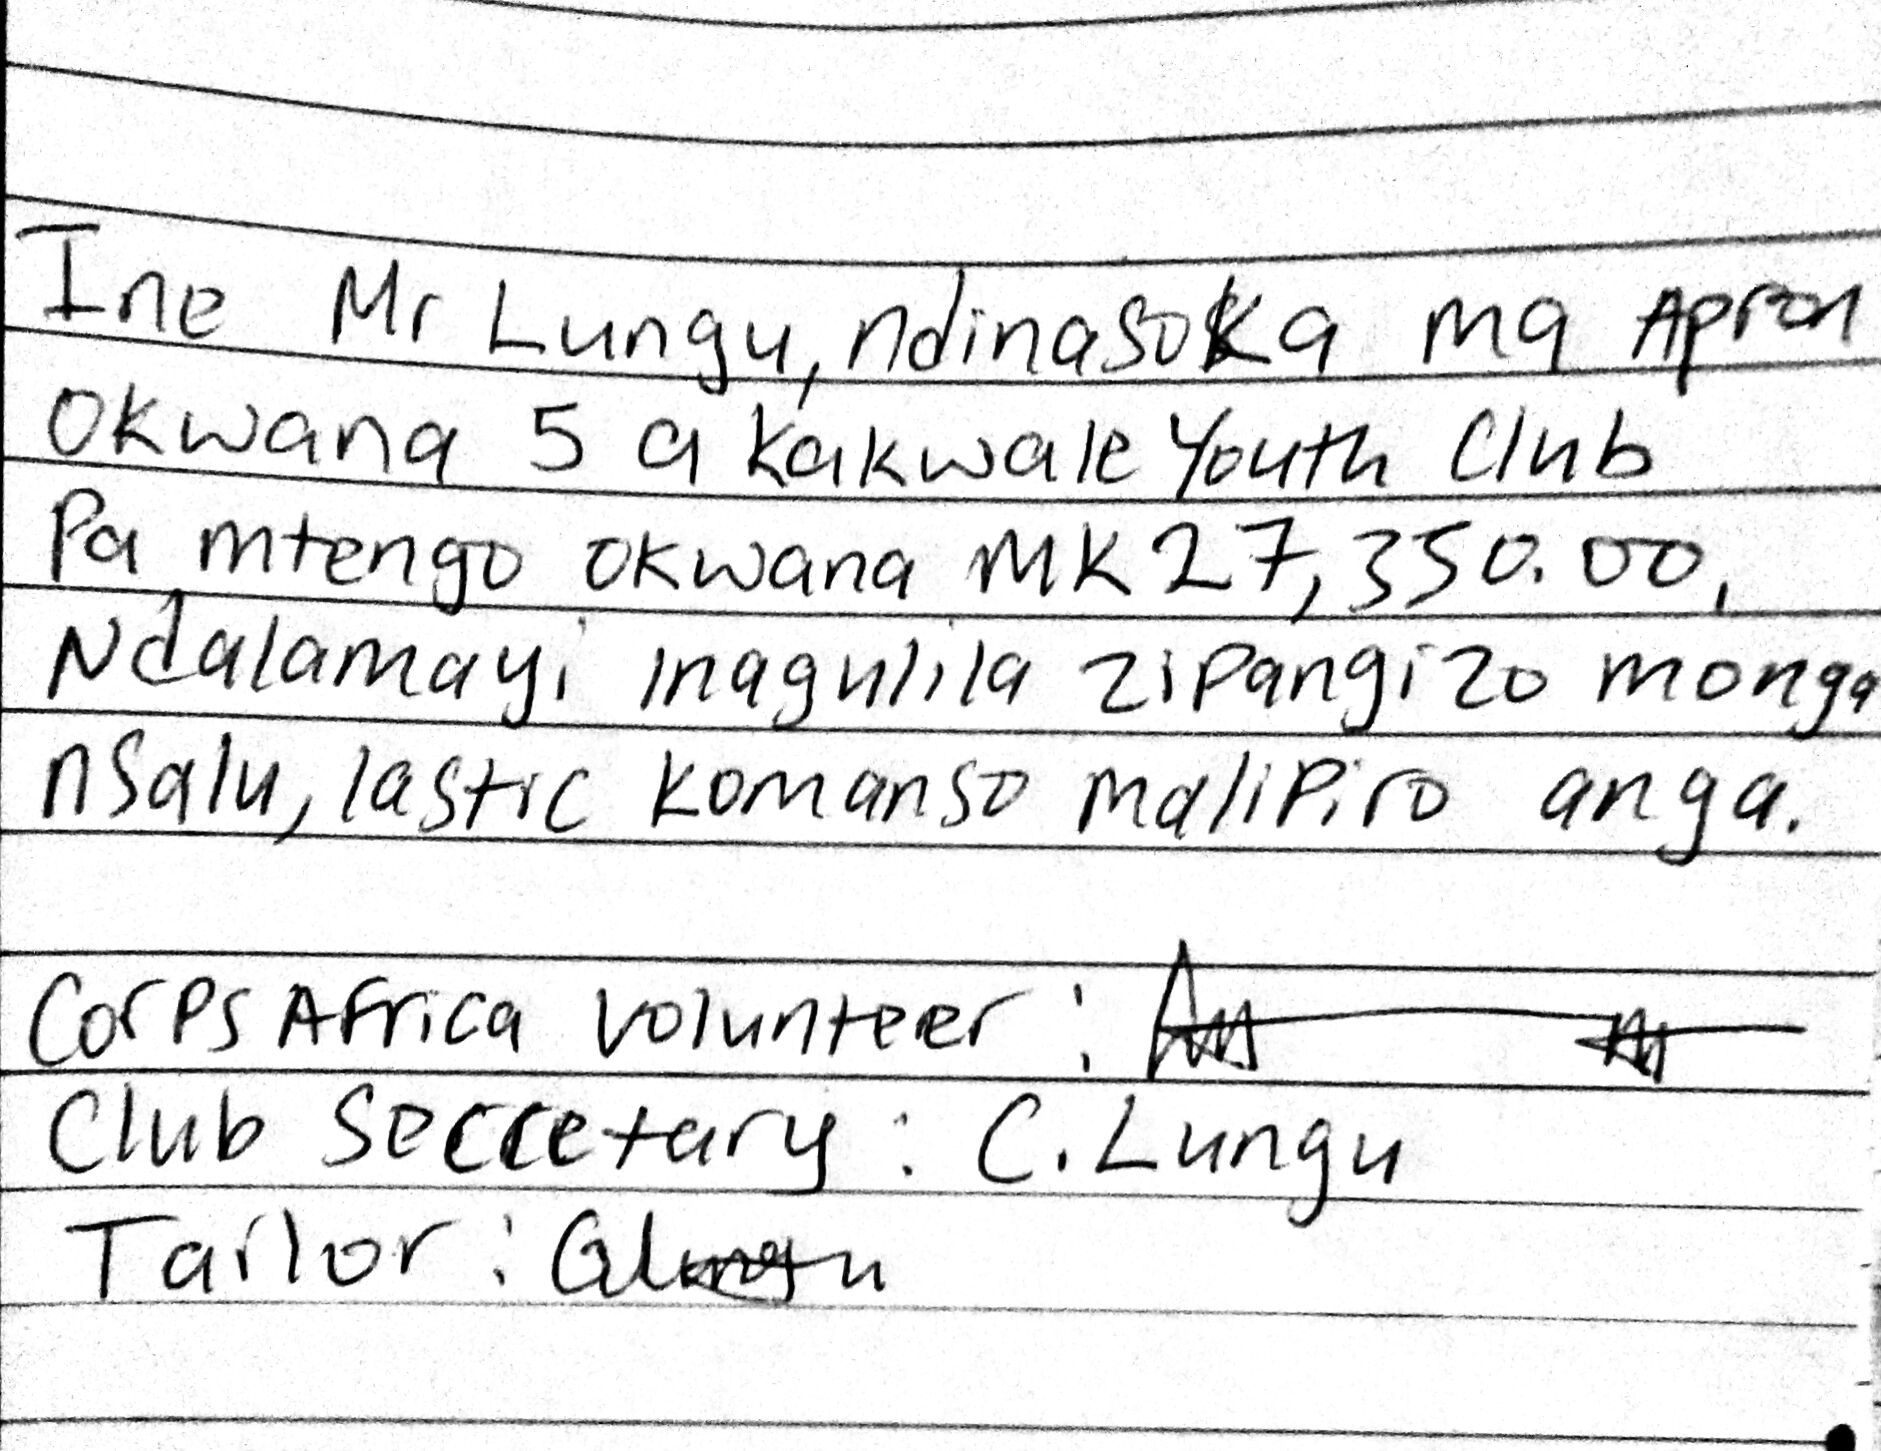 Ine Mr Lungu, ndinasoka ma Apron
okwana 5 a Kakwale Youth Club
Pa mtengo okwana MK27,350.00,
Ndalamayi inagulila zipangizo monga
nsalu, lastic komanso malipiro anga.
Corps Africa Volunteer :
Club Secretary : C. Lungu
Tailor : Glungu